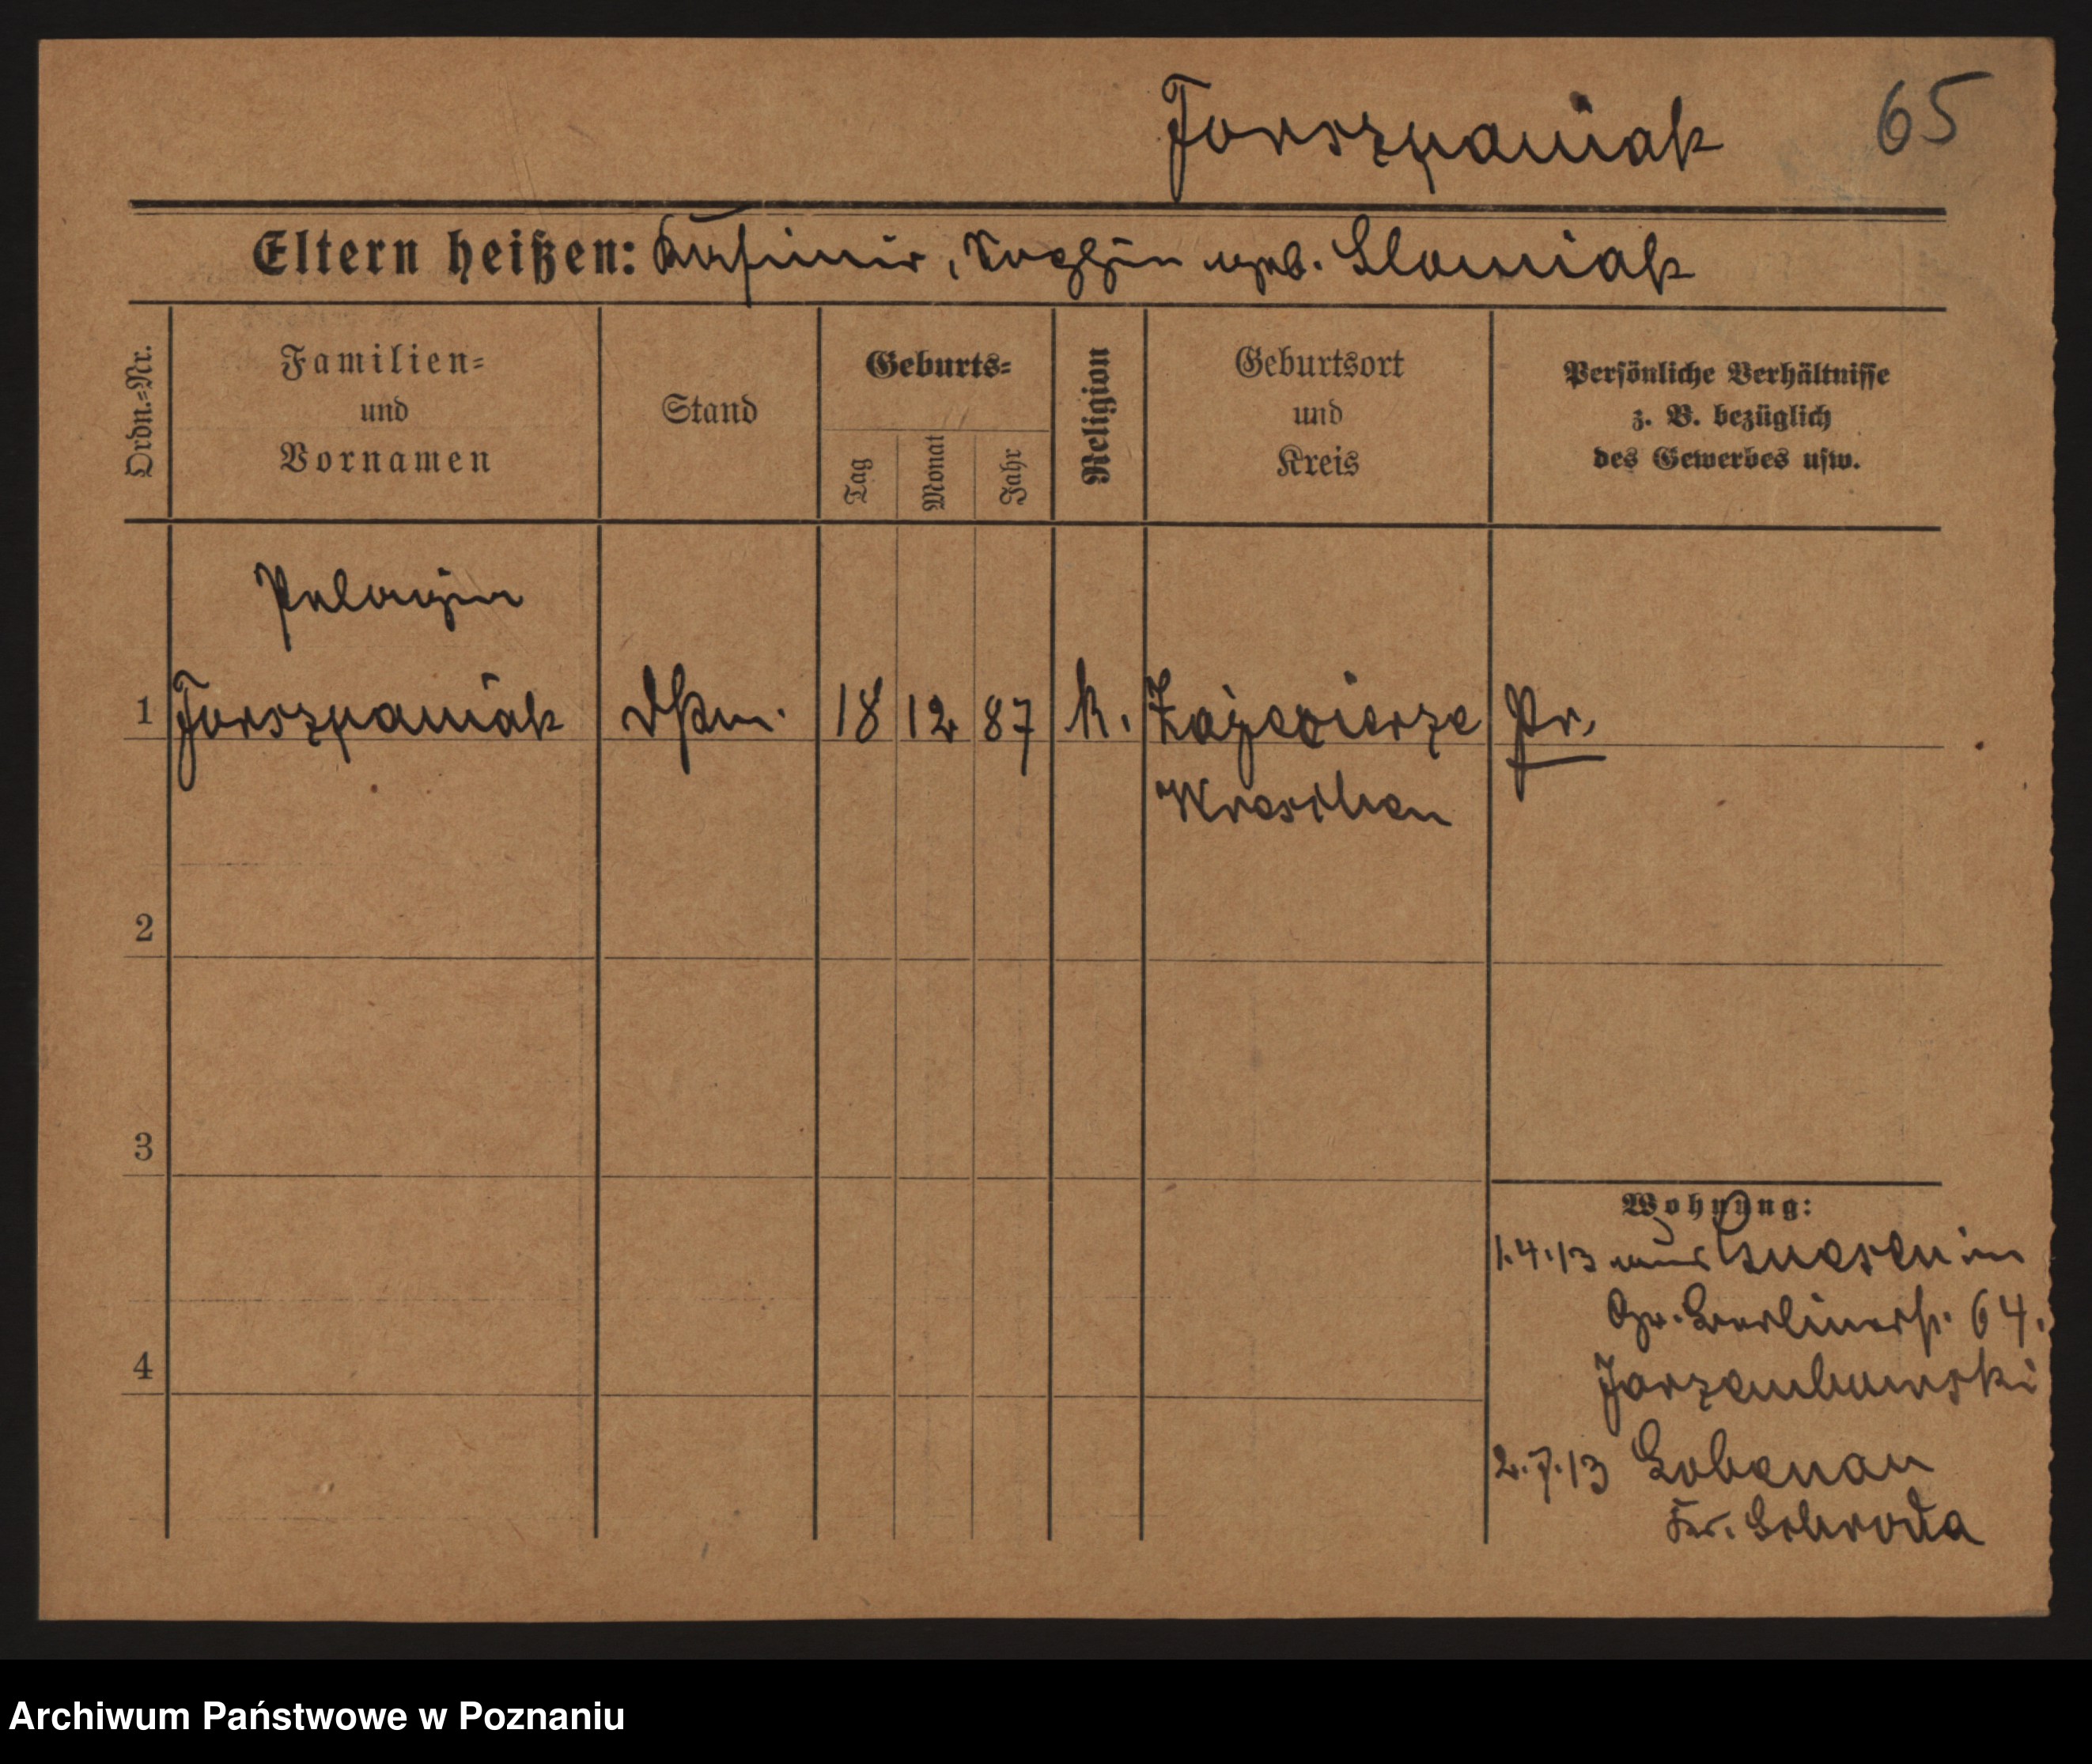 Forszpaniak 65
Eltern heißen: Kasimir, Sophia geb. Slomiak
Ordn.-Nr.
Familien=
und
Vornamen
Stand
Geburts=
Tag
Monat
Jahr
Religion
Geburtsort
und
Kreis
Persönliche Verhältnisse
z. B. bezüglich
des Gewerbes usw.
Pelagia
1 Forszpaniak 18 12 87 k. Zajezierze Pr.
Wreschen
2
3
4
Wohnung:
1.4.13 aus Gnesen in
Gr. Berlinerstr. 64.
Jarzembowski
2.7.13 Lobenau
Kr. Schroda
Archiwum Państwowe w Poznaniu